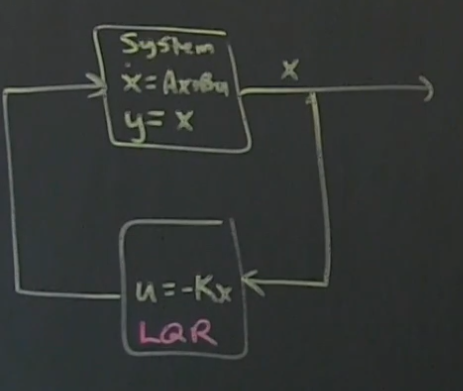 System
ẋ = Ax+Bu
y = x
x
u = -Kx
LQR